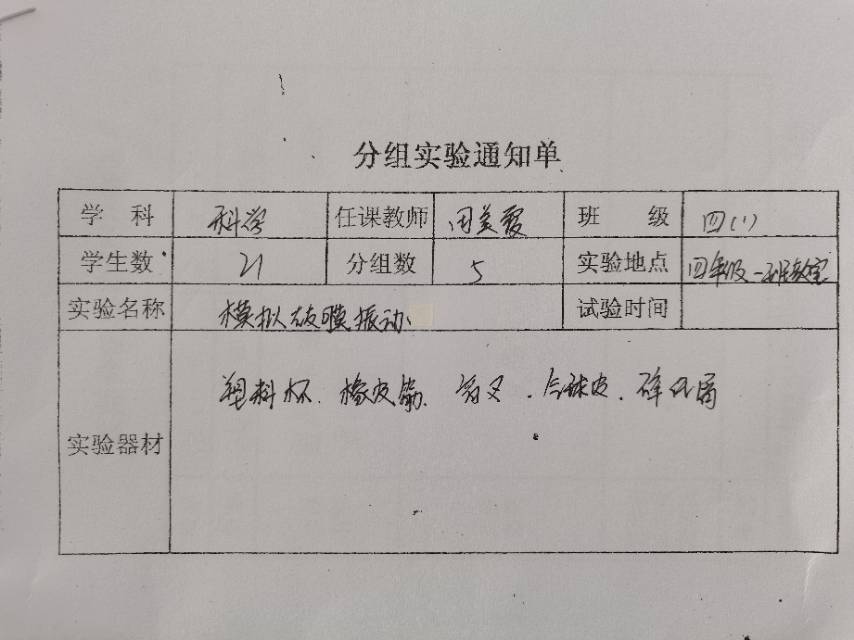 分组实验通知单
学 科 科学 任课教师 田美霞 班 级 四(1)
学生数 21 分组数 5 实验地点 四年级一班教室
实验名称 模拟鼓膜振动 试验时间
塑料杯、橡皮筋、音叉、气球皮、碎纸屑
实验器材